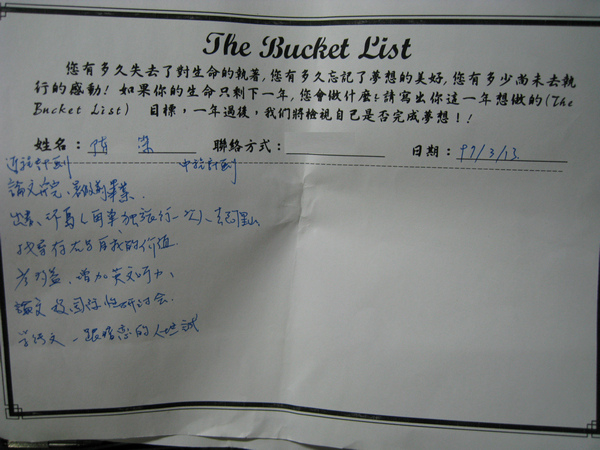 The Bucket List
您有多久失去了對生命的執著,您有多久忘記了夢想的美好,您有多少尚未去執
行的感動! 如果你的生命只剩下一年,您會做什麼?請寫出你這一年想做的(The
Bucket List) 目標,一年過後,我們將檢視自己是否完成夢想!!
姓名: 聯絡方式: 日期: 97/3/13
近程計劃 中程計劃
論文 完、 畢業.
出書、环島(用單 獨旅行一次)、
找尋存在 自我的价值.
考多益、增加英文听力、
論文投国际性研讨会.
学 文 一跟暗恋的人坦誠